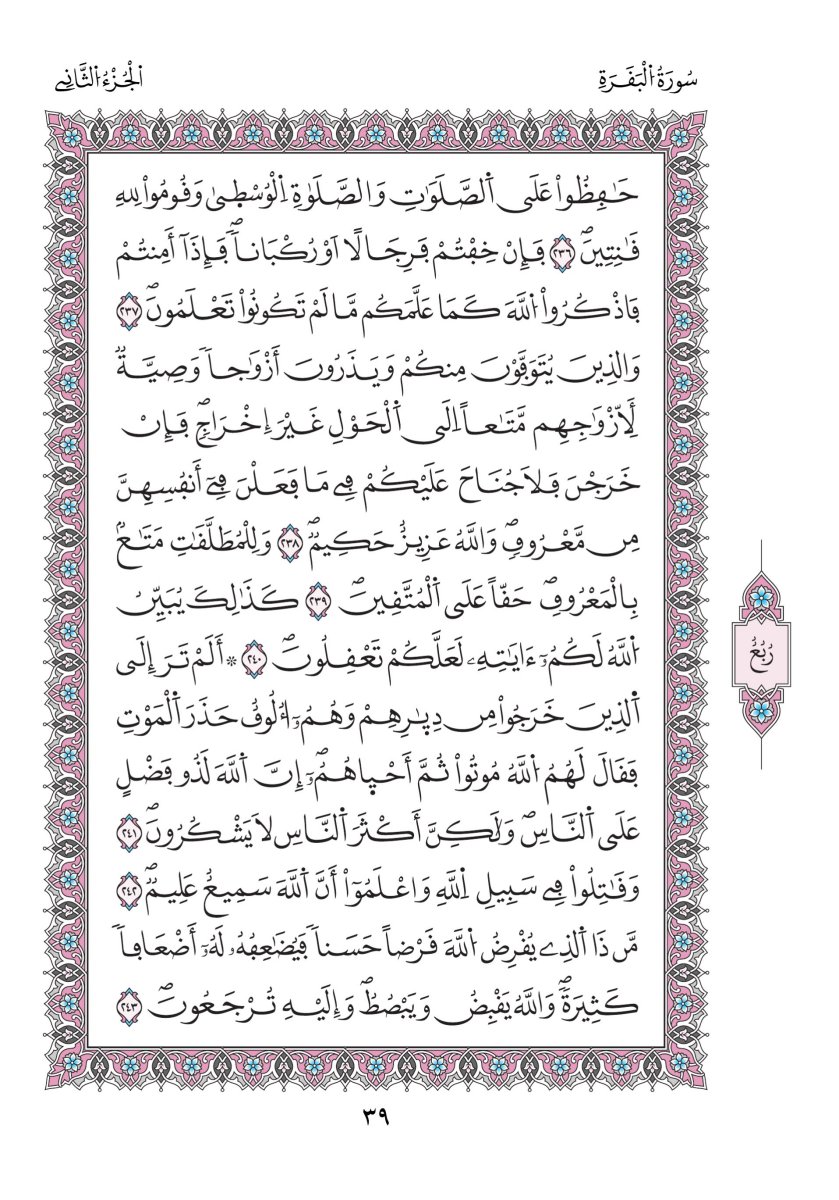 سُورَةُ الْبَقَرَةِ
الْجُزْءُ الثَّانِي
حَٰفِظُواْ عَلَى اَ۬لصَّلَوَٰتِ وَالصَّلَوٰةِ اِ۬لْوُسْط۪ىٰ وَقُومُواْ لِلهِ
قَٰنِتِينَۖ ٢٣٦ فَإِنْ خِفْتُمْ فَرِجَالًا اَوْ رُكْبَاناٗۖ فَإِذَآ أَمِنتُمْ
فَاذْكُرُواْ اُ۬للَّهَ كَمَا عَلَّمَكُم مَّا لَمْ تَكُونُواْ تَعْلَمُونَۖ ٢٣٧
وَالذِينَ يُتَوَفَّوْنَ مِنكُمْ وَيَذَرُونَ أَزْوَٰجاٗ وَصِيَّةٞ
لِّأَزْوَٰجِهِم مَّتَٰعاً اِلَى اَ۬لْحَوْلِ غَيْرَ إِخْرَاجٖۖ فَإِنْ
خَرَجْنَ فَلَا جُنَاحَ عَلَيْكُمْ فِے مَا فَعَلْنَ فِےٓ أَنفُسِهِنَّ
مِن مَّعْرُوفٖۖ وَاللَّهُ عَزِيزٌ حَكِيمٞۖ ٢٣٨ وَلِلْمُطَلَّقَٰتِ مَتَٰعُۢ
بِالْمَعْرُوفِۖ حَقّاً عَلَى اَ۬لْمُتَّقِينَۖ ٢٣٩ كَذَٰلِكَ يُبَيِّنُ
اُ۬للَّهُ لَكُمُۥٓ ءَايَٰتِهِۦ لَعَلَّكُمْ تَعْقِلُونَۖ ٢٤٠ * أَلَمْ تَرَ إِلَى
اَ۬لذِينَ خَرَجُواْ مِن دِيٰ۪رِهِمْ وَهُمُۥٓ أُلُوفٌ حَذَرَ اَ۬لْمَوْتِ
فَقَالَ لَهُمُ اُ۬للَّهُ مُوتُواْ ثُمَّ أَحْي۪اهُمُۥٓۖ إِنَّ اَ۬للَّهَ لَذُو فَضْلٍ
عَلَى اَ۬لنَّاسِۖ وَلَٰكِنَّ أَكْثَرَ اَ۬لنَّاسِ لَا يَشْكُرُونَۖ ٢٤١
وَقَٰتِلُواْ فِے سَبِيلِ اِ۬للَّهِ وَاعْلَمُوٓاْ أَنَّ اَ۬للَّهَ سَمِيعٌ عَلِيمٞۖ ٢٤٢
مَّن ذَا اَ۬لذِے يُقْرِضُ اُ۬للَّهَ قَرْضاً حَسَناٗ فَيُضَٰعِفُهُۥ لَهُۥٓ أَضْعَافاٗ
كَثِيرَةٗۖ وَاللَّهُ يَقْبِضُ وَيَبْصُطُۖ وَإِلَيْهِ تُرْجَعُونَۖ ٢٤٣
رُبُعُ
٣٩